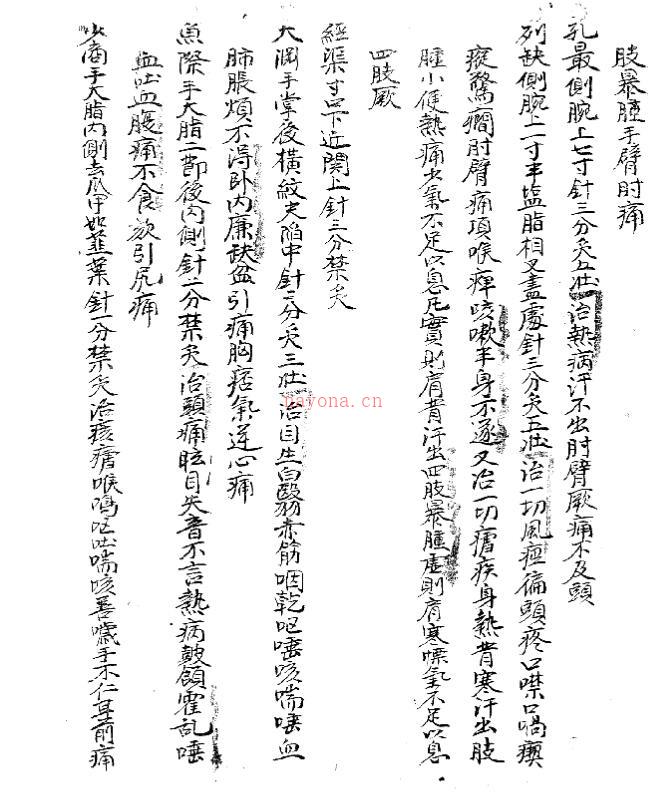 肢暴腫手臂肘痛
孔最側腕上七寸針三分灸五壯治熱病汗不出肘臂厥痛不及頭
列缺側腕上一寸半塩脂相叉盡處針三分灸五壯治一切風痙偏頭疼口噤口喎瘈
瘲驚癎肘臂痛項喉痺咳嗽半身不遂又治一切瘧疾身熱背寒汗出肢
腫小便熱痛少氣不足以息凡實則肩背汗出四肢暴腫虛則肩寒慄氣不足以息
四肢厥
經渠寸口下近関上針三分禁灸
大渊手掌後橫紋尖陷中針二分灸三壯治目生白翳赤筋咽乾呕唾咳喘唾血
肺脹煩不得卧内廉缺盆引痛胸痞氣逆心痛
魚際手大脂二節後内側針一分禁灸治頭痛眩目失音不言熱病皷頷霍乱唾
血吐血腹痛不食欬引尻痛
少商手大脂内側去爪甲如韮葉針一分禁灸治痎瘧喉鳴呕吐喘咳善嚏手不仁耳前痛
nayona.cn